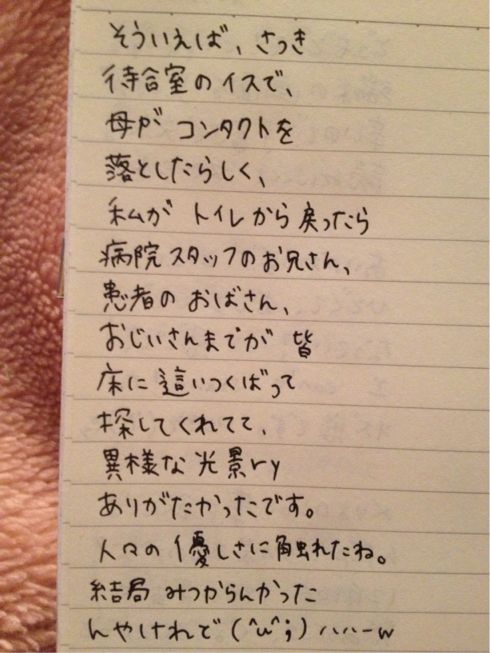 そういえば、さっき
待合室のイスで、
母が コンタクトを
落としたらしく、
私が トイレから戻ったら
病院スタッフのお兄さん、
患者の おばさん、
おじいさんまでが 皆
床に 這いつくばって
探してくれてて、
異様な 光景ry
ありがたかったです。
人々の 優しさに触れたね。
結局 みつからんかった
んやけれど(^ω^;)ハハーw